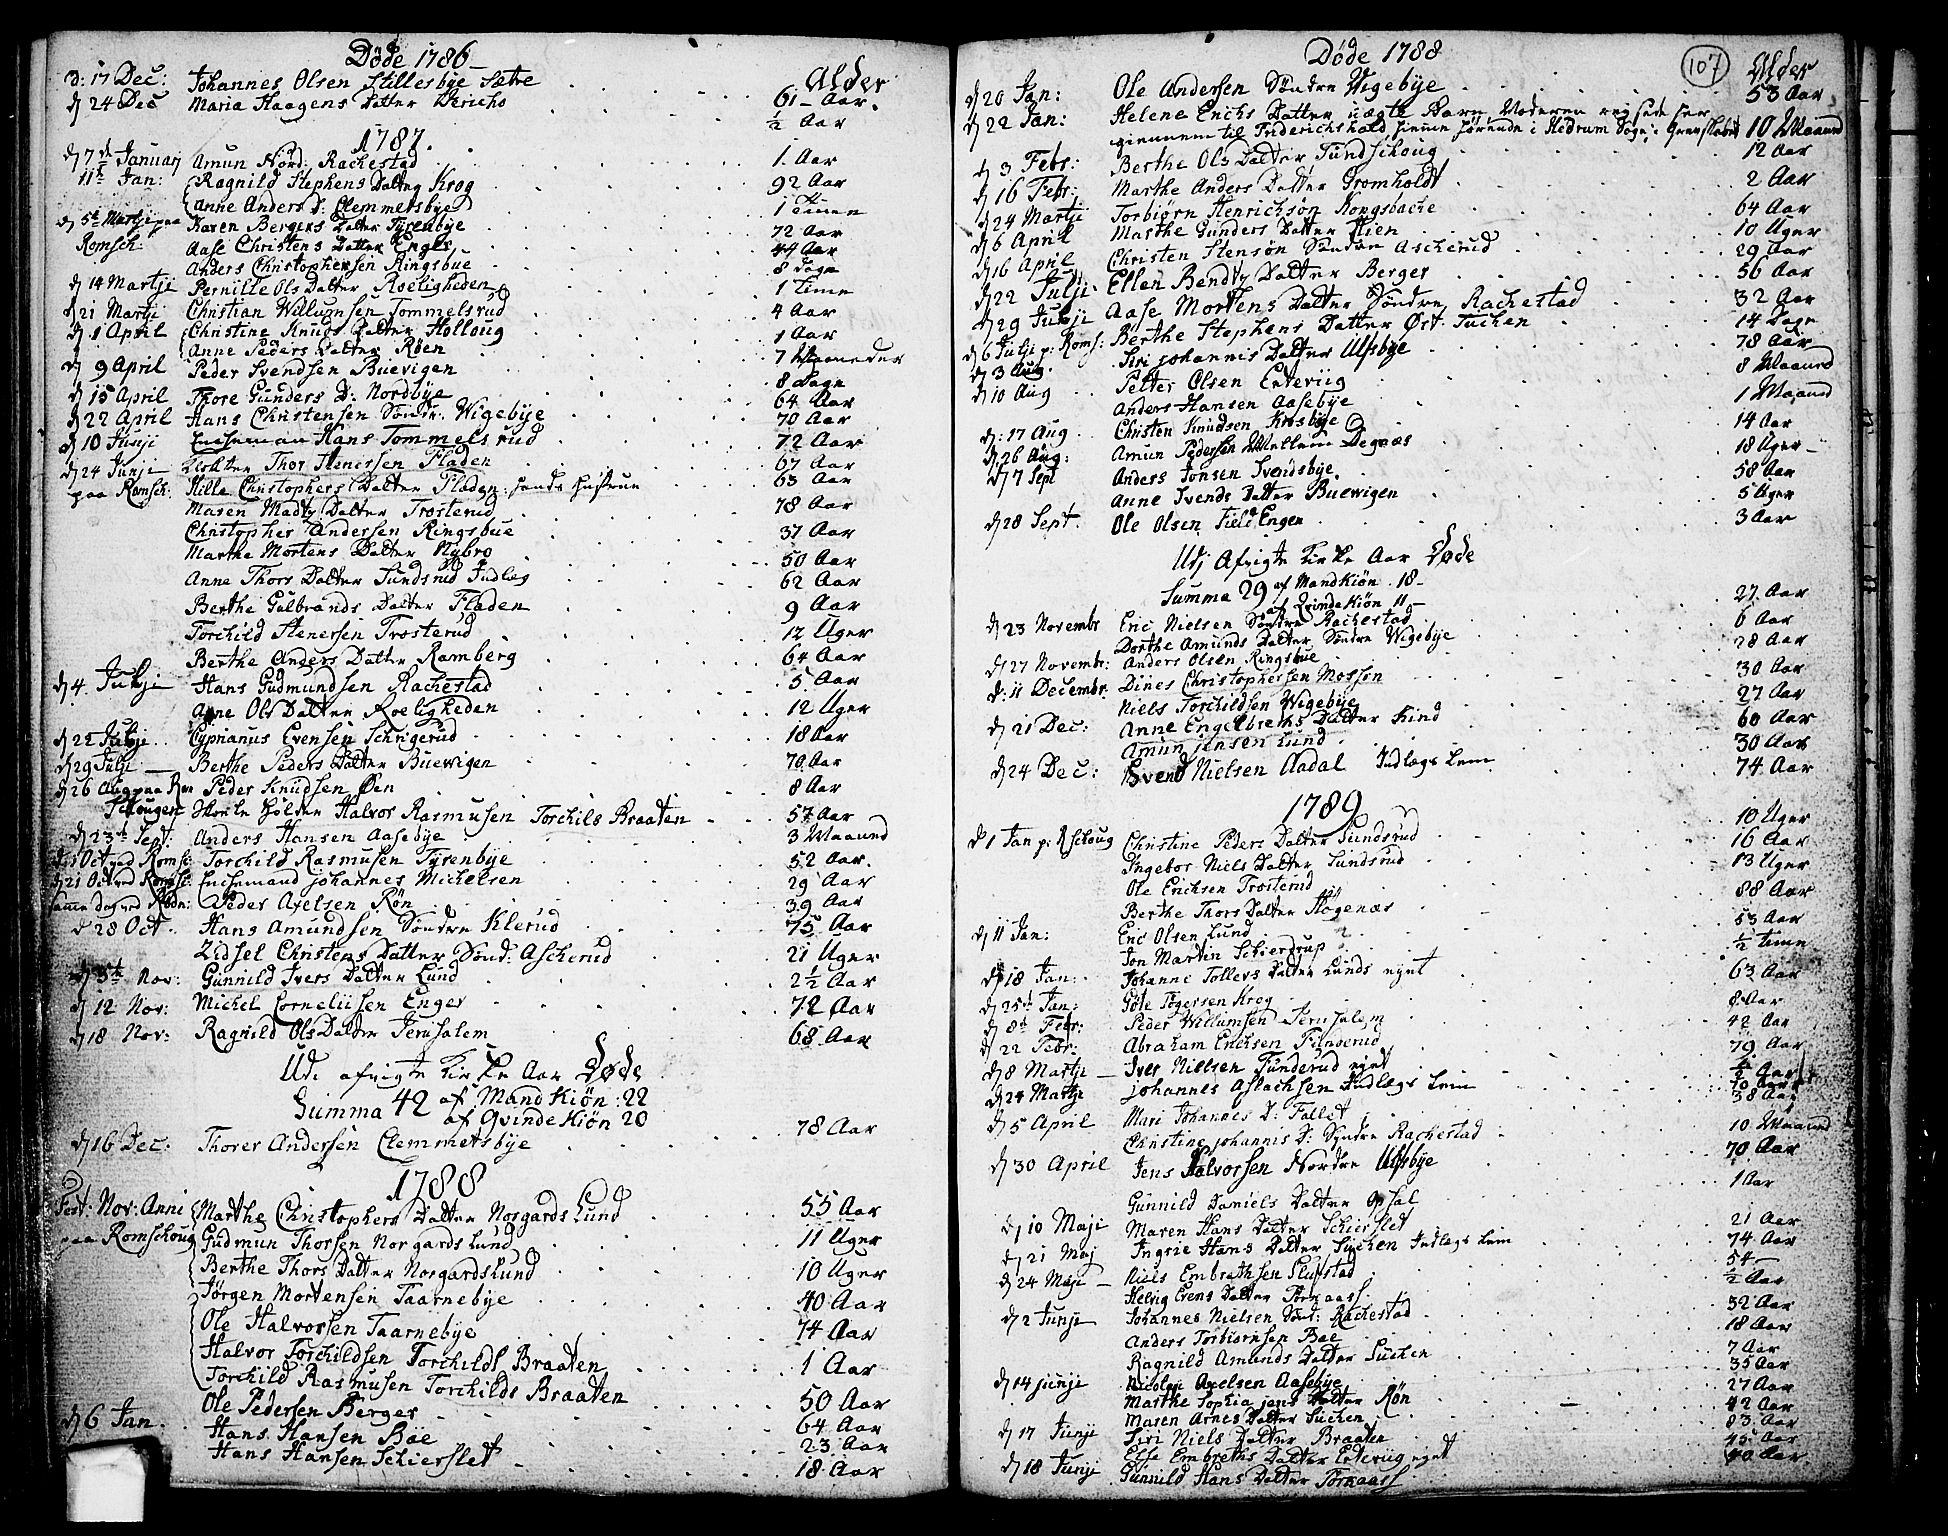 Døde 1786
Alder
d: 17 Dec: Johannes Olsen Stillesbye Sætre 61 Aar
d 24 Dec Maria Haagens Datter Jericho ½ Aar
1787
d 7de Januarj Amun Nørd: Rachestad 1 Aar
11te Jan: Ragnild Stephens Datter Krog 92 Aar
Anne Anders D: Clemmetsbye 1 time
d 5te Martji paa Karen Bergers Datter Tyrenbye 72 Aar
Romsch: Aase Christens Datter Enger 44 Aar
Anders Christophersen Ringsbue 8 Dage
d 14 Martji Pernille Ols Datter Roeligheden 1 time
d 21 Martji Christian Willumsen Tommelsrud 4 Aar
d 1 April Christine Knuds Datter Holloug 1 Aar
Anne Peders Datter Røen 7 Maaneder
d 9 April Peder Svendsen Buevigen 8 Dage
d 15 April Thore Gunders D: Nordbye 64 Aar
d 22 April Hans Christensen Søndr: Wigebye 70 Aar
d 10 Junji Encheman Hans Tommelsrud 72 Aar
d 24 Junji Thor Stenersen Fladen 67 Aar
paa Romsch: Kille Christophers Datter Fladen: hands hustrue 63 Aar
Maren Madtz Datter Trosterud 78 Aar
Christopher Andersen Ringsbue 37 Aar
Marthe Mortens Datter Nybro 50 Aar
Anne Thors Datter Sundsrud Indlæg 62 Aar
Berthe Gulbrands Datter Fladen 9 Aar
Torchild Stenersen Trosterud 12 Uger
Berthe Anders Datter Ramberg 64 Aar
d 4 Julji Hans Gudmundsen Rachestad 5 Aar
Anne Ols Datter Roeligheden 12 Uger
d 22 Julji Cyprianus Evensen Schrigerud 18 Aar
d 29 Julji Berthe Peders Datter Buewigen 70 Aar
d 26 Aug paa Rom Peder Knudsen Øen 8 Aar
Schouger Halvor Rasmusen Torchils Braaten 57 Aar
d 23de Sept: Anders Hansen Aasebye 3 Maaned
Oct ved Romsc: Torchild Rasmusen Tyrenbye 52 Aar
d 21 Oct ved Romsc: Enchemand johannes Michelsen 29 Aar
samme dag ved Rødn: Peder Axelsen Røn 39 Aar
d 28 Oct. Hans Amundsen Søndre Klerud 75 Aar
Zidsel Christens Datter Sønd: Ascherud 21 Uger
d 5te Nov: Gunnild Ivers Datter Lund 2½ Aar
d 12 Nov: Michel Corneliisen Enger 72 Aar
d 18 Nov: Ragnild Ols Datter Jerusalem 68 Aar
Udi afvigte Kirke Aar Døde
Summa 42 af Mand Kiøn: 22
af Qvinde Kiøn 20
d 16 Dec: Thorer Andersen Clemmetsbye 78 Aar
1788
Fest: Nov: Anni Marthe Christophers Datter Norgards Lund 55 Aar
paa Romschoug Gudmun Thorsen Norgards Lund 11 Uger
Berthe Thors Datter Norgardslund 10 Uger
Jørgen Mortensen Taarnebye 40 Aar
Ole Halvorsen Taarnebye 74 Aar
Halvor Torchildsen Torchilds Braaten 1 Aar
Torchild Rasmusen Torchilds Braaten 50 Aar
Ole Pedersen Berger 64 Aar
d 6 Jan. Hans Hansen Bøe 23 Aar
Hans Hansen Schierslet 18 Aar
Døde 1788
107
Alder
d 20 Jan: Ole Andersen Søndre Wigebye 53 Aar
d 22 Jan: Helene Erichs Datter uægte Barn, Moderen reisede her
giennem til Friderichshald hiemme hørende i Hedrum Sogn i Grevskabet 10 Maaned
d 3 Febr: Berthe Ols Datter Tundschoug 12 Aar
d 16 Febr: Marthe Anders Datter Gromholdt 2 Aar
d 24 Martji Torbiørn Henrichsøn Kongsbache 64 Aar
d 6 April Marthe Gunders Datter Stien 10 Uger
d 16 April Christen Stensøn Søndre Ascherud 29 Aar
d 22 Julji Ellen Bendtz Datter Berger 56 Aar
d 29 Julji Aase Mortens Datter Søndre Rachestad 32 Aar
d 6 Julji p: Romsc: Berthe Stephens Datter Øst: Tuchen 14 Dage
d 3 Aug. Siri johannis Datter Ulfsbye 78 Aar
d 10 Aug Petter Olsen Erteviig 8 Maaned
Anders Hansen Aasebye 1 Maaned
d: 17 Aug Christen Knudsen Krosbye 14 Aar
d 26 Aug: Amun Pedersen Mellem Degnæs 18 Uger
d 7 Sept Anders Jonsen Svendsbye 58 Aar
Anne Svends Datter Buewigen 5 Uger
d 28 Sept. Ole Olsen Field Engen 3 Aar
Udj Afvigte Kirke Aar Døde
Summa 29 af Mandkiøn 18
af Qvinde Kiøn 11
d 23 Novembr Eric Nielsen Søndre Rachestad 27 Aar
Dorthe Amunds Datter Søndre Wigebye 6 Aar
d 27 Novembr: Anders Olsen Ringsbue 28 Aar
d: 11 Decembr. Dines Christophersen Mossen 30 Aar
Niels Torchildsen Wigebye 27 Aar
d 21 Dec: Anne Engelbreths Datter Kind 60 Aar
Amun jensen Lund 30 Aar
d 24 Dec: Svend Nielsen Aadal Indlægs Lem 74 Aar
1789
d 1 Jan p: Rschoug Christine Peders Datter Sundsrud 10 Uger
Ingebor Niels Datter Sundsrud 16 Aar
Ole Erichsen Trosterud 13 Uger
Berthe Thors Datter Høgenæs 88 Aar
d 11 Jan: Eric Olsen Lund 53 Aar
Jon Martin Schierdrup ½ time
d 18 Jan: Johanne Tollevs Datter Lunds eyet 63 Aar
d 25de Jan: Gøle Togersen Krog 8 Aar
d 8de Febr: Peder Willumsen Jerusalem 42 Aar
d 22 Febr: Abraham Erichsen 79 Aar
d 8 Martji Iver Nielsen Funderud eyet ½ Aar
d 24 Martji johannes Aslachsen Indlægs Lem 70 Aar
d 5 April Mari Johannes D: Fallet 38 Aar
Christine johannis D: Syndre Rachestad 10 Maaned
d 30 April Jens Halvorsen Nordre Ulfsbye 70 Aar
Gunnild Daniels Datter Opsal 1 Aar
d 10 Maji Maren Hans Datter Schierslet 21 Aar
d 21 Maj Ingrie Hans Datter Tuchen Indlægs Lem 74 Aar
d 24 Maji Niels Embrethsen Slupstad 54
Helvig Evens Datter Tornaass ½ Aar
d 2 Junji Johannes Nielsen Sønd: Rachestad 32 Aar
Anders Torbiørnsen Bøe 18 Aar
Ragnild Amunds Datter Tuchen 7 Aar
d 14 junji Nicolai Axelsen Aasebye 35 Aar
Marthe Sophia jens Datter Røn 27 Aar
Maren Arnes Datter Tuchen 42 Aar
d 17 Junji Siri Niels Datter Braaten 83 Aar
Else Embreths Datter Erteviig eyet 45 Aar
d 18 Junji Gunnild Hans Datter Tornaass 40 Aar